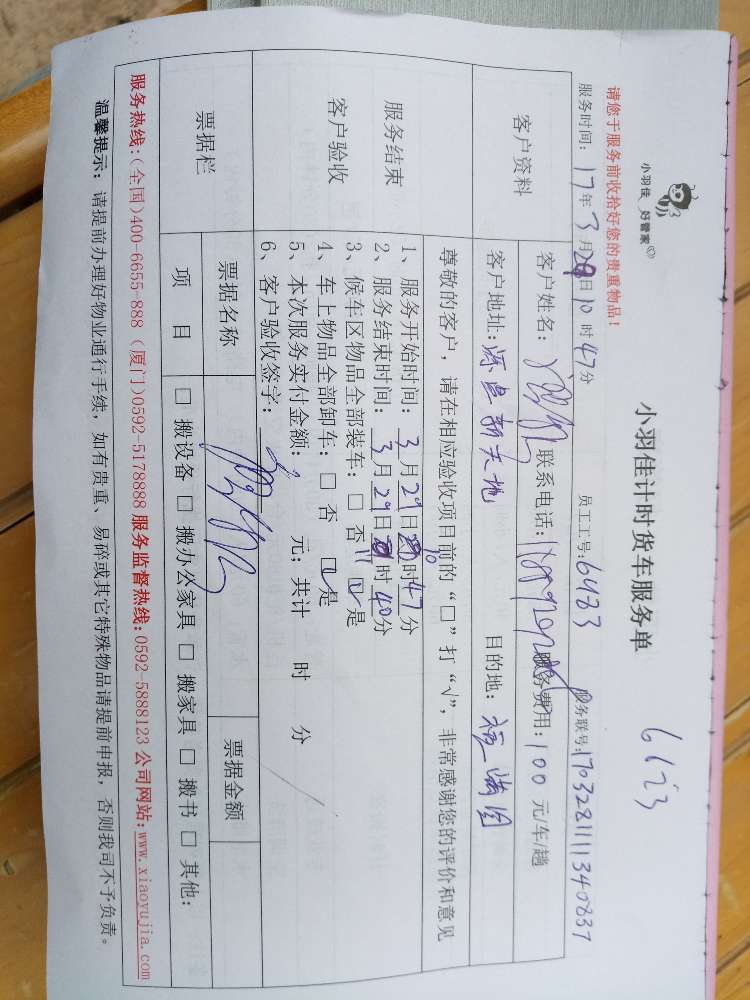 小羽佳 好管家
小羽佳计时货车服务单
6423
请您于服务前收拾好您的贵重物品！
服务时间：17年3月29日10时47分 员工工号：6423 服务联号：170328111340837
客户资料
客户姓名： 联系电话： 服务费用：100 元/车/趟
客户地址： 新天地 目的地：
尊敬的客户，请在相应验收项目前的“□”打“√”，非常感谢您的评价和意见
服务结束
客户验收
1、服务开始时间：3月29日10时47分
2、服务结束时间：3月29日 时40分
3、候车区物品全部装车：□否 ☑是
4、车上物品全部卸车：□否 ☑是
5、本次服务实付金额： 元；共计 时 分
6、客户验收签字：
票据栏
票据名称 票据金额
项 目 □ 搬设备 □ 搬办公家具 □ 搬家具 □ 搬书 □ 其他:
服务热线：(全国)400-6655-888 (厦门)0592-5178888 服务监督热线:0592-5888123 公司网站:www.xiaoyujia.com
温馨提示：请提前办理好物业通行手续，如有贵重、易碎或其它特殊物品请提前申报，否则我司不予负责。